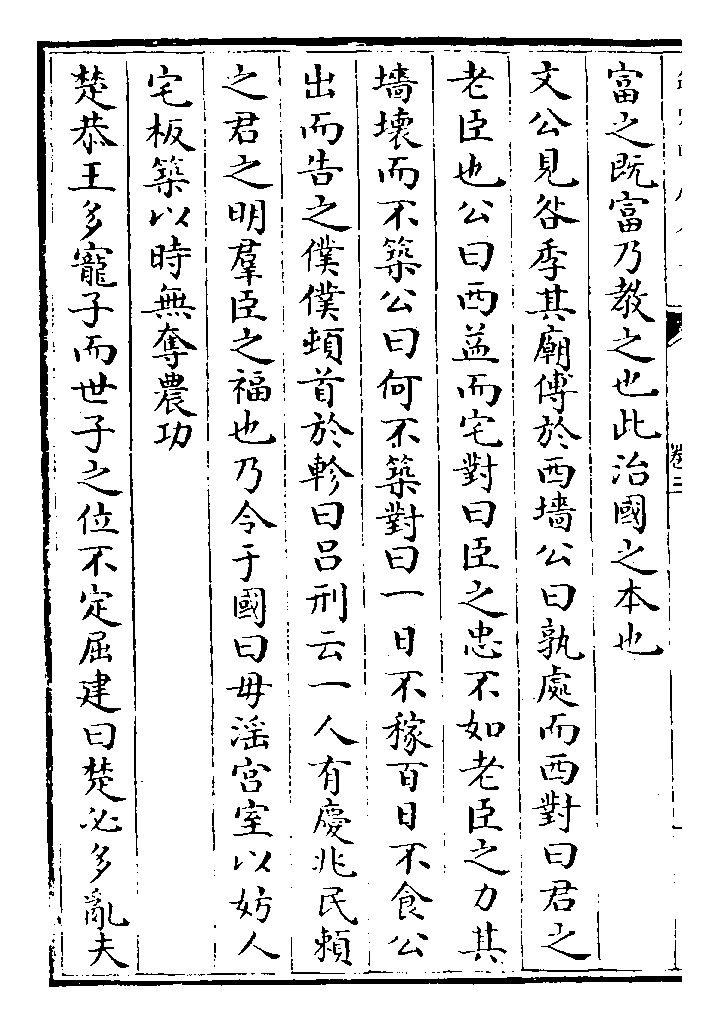 富之既富乃教之也此治國之本也
文公見咎季其廟傅於西墻公曰孰處而西對曰君之
老臣也公曰西益而宅對曰臣之忠不如老臣之力其
墻壞而不築公曰何不築對曰一日不稼百日不食公
出而告之僕僕頓首於軫曰吕刑云一人有慶兆民頼
之君之明羣臣之福也乃令于國曰毋淫宫室以妨人
宅板築以時無奪農功
楚恭王多寵子而世子之位不定屈建曰楚必多亂夫
卷三